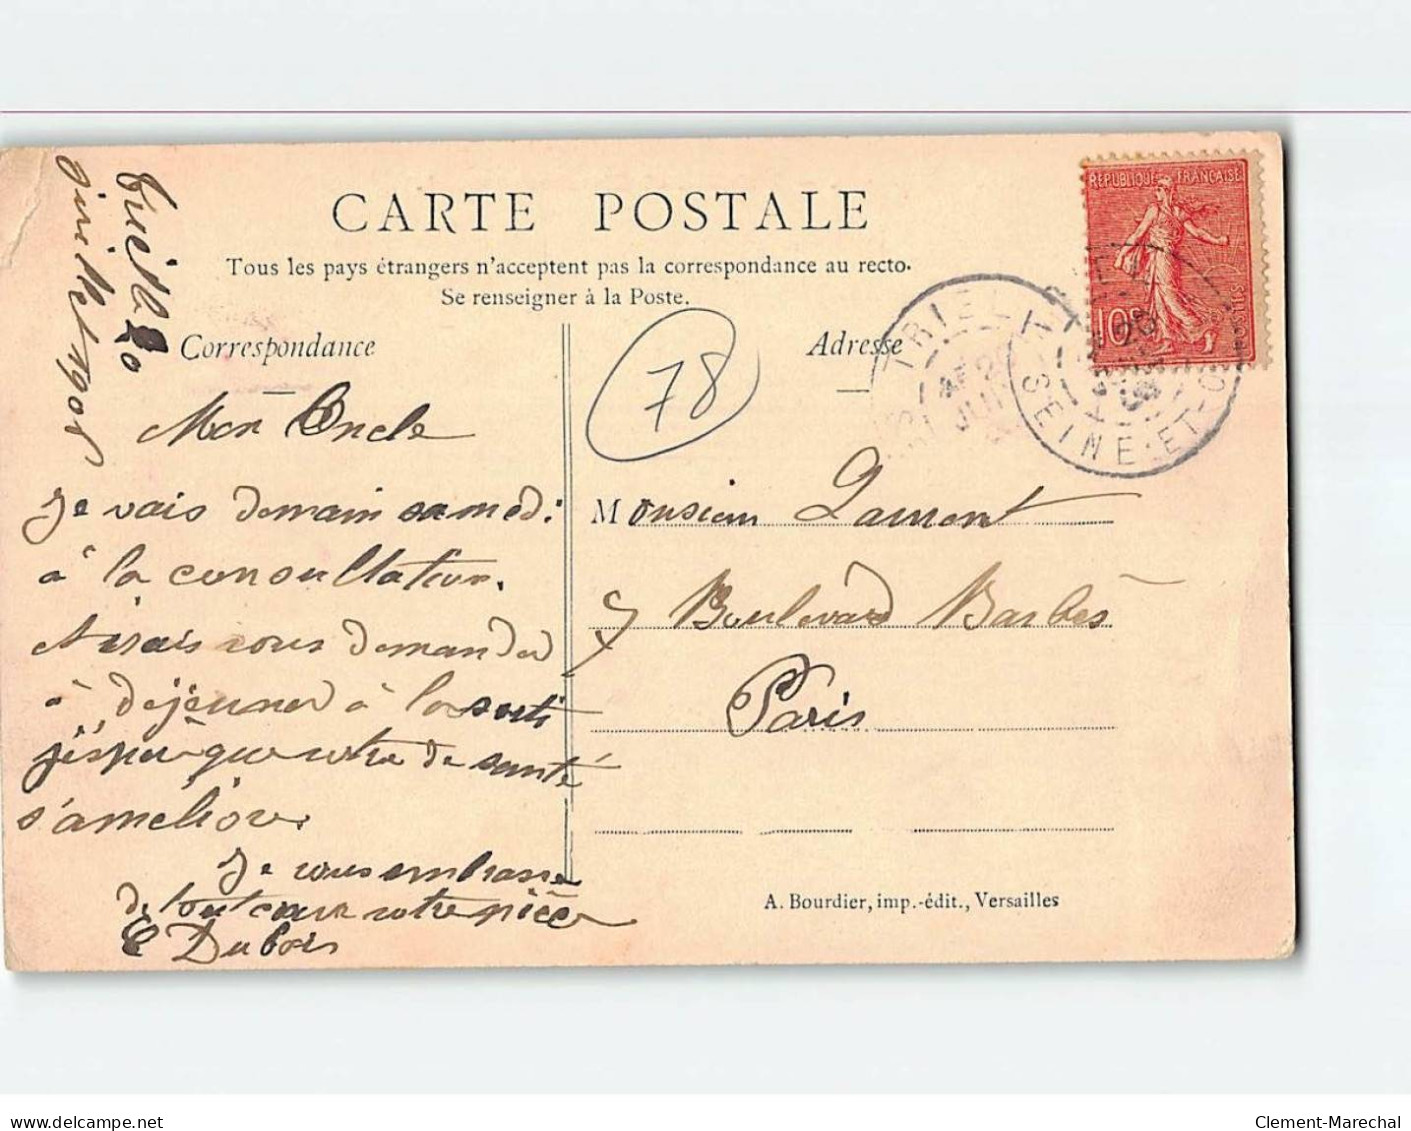 CARTE POSTALE
Tous les pays étrangers n'acceptent pas la correspondance au recto.
Se renseigner à la Poste.
Correspondance
Adresse
Triel 20
juillet 1908
Mon Oncle
Je vais demain samedi
à la consultation.
et irais vous demander
à déjeuner à la sortie
j'espère que votre de santé
s'améliore.
Je vous embrasse
de tout cœur votre nièce
E Dubois
78
RÉPUBLIQUE FRANÇAISE
10c
POSTES
TRIEL
SEINE-ET-O
Monsieur Lamont
7 Boulevard Barbès
Paris
A. Bourdier, imp.-édit., Versailles
Clement-Marechal